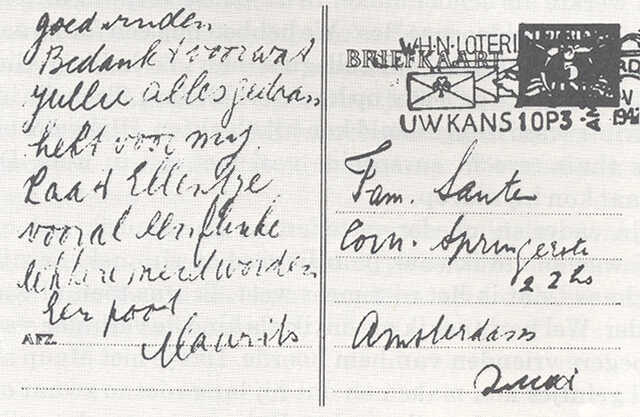 goed vinden
Bedankt voor wat
jullie alles gedaan
hebt voor mij
Laat Ellentje
vooral een flinke
lekkere meid worden
Een poot
Maurits
AFZ.
W.H.N. LOTERI
BRIEFKAART
NEDERLAND
5
UW KANS 10P3
V
194
Fam. Santen
Corn. Springerstr
22 hs
Amsterdam
Zuid